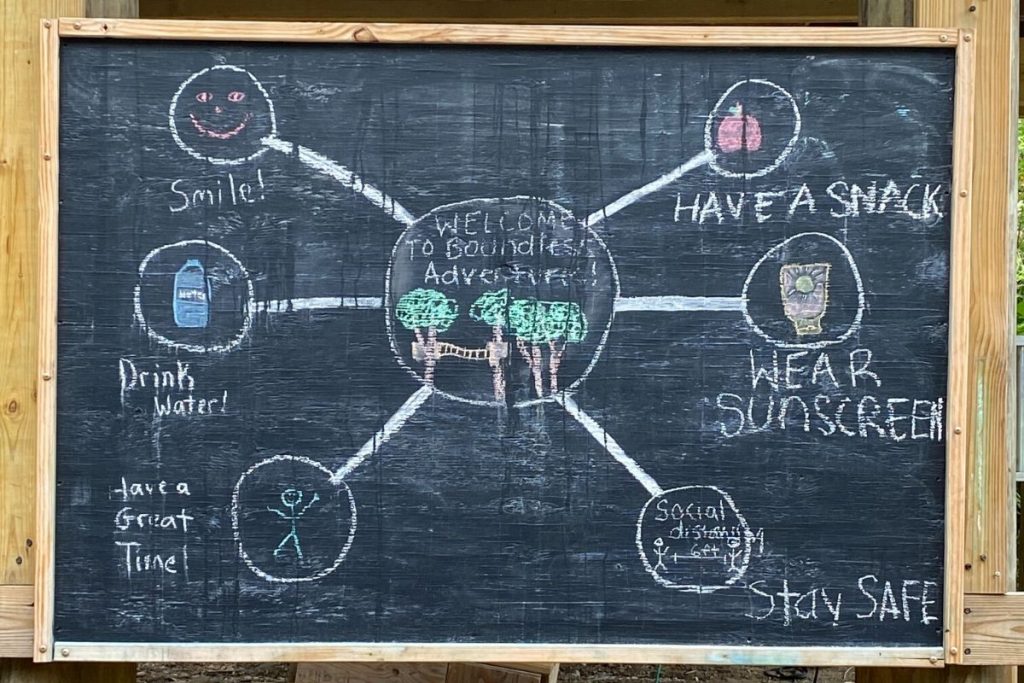 Smile!
HAVE A SNACK
WELCOME
TO Boundless
Adventures!
Water
Drink
Water!
WEAR
SUNSCREEN
Have a
Great
Time!
Social
distancing
6ft
Stay SAFE